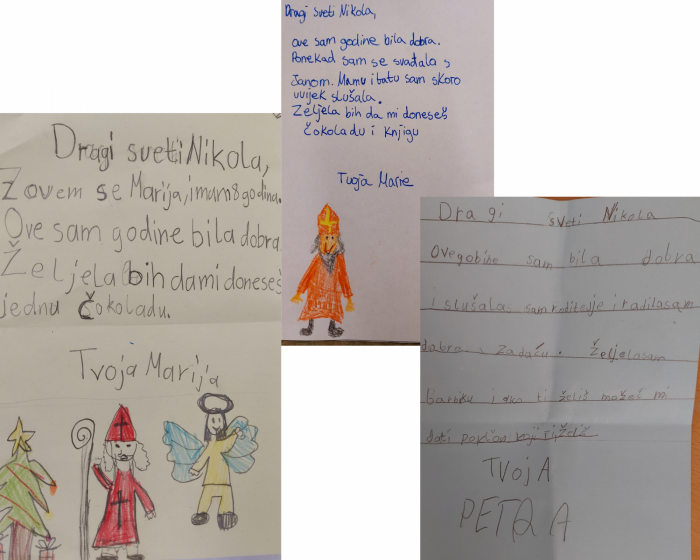 Dragi svetti Nikola,
Zovem se Marija, imam 8 godina.
Ove sam godine bila dobra
Željela bih da mi doneseš
jednu čokoladu.
Tvoja Marija
Dragi sveti Nikola,
ove sam godine bila dobra.
Ponekad sam se svađala s
Janom. Mamu i tatu sam skoro
uvijek slušala.
Željela bih da mi doneseš
čokoladu i knjigu
Tvoja Marie
Dragi sveti Nikola
Ove gobine sam bila dobra
i slušala sam roditelje i radila sam
dobro zadaću. Željela sam
barbiku i ako ti želiš možeš mi
dati poklon koji ti želiš
TVOJA
PETRA